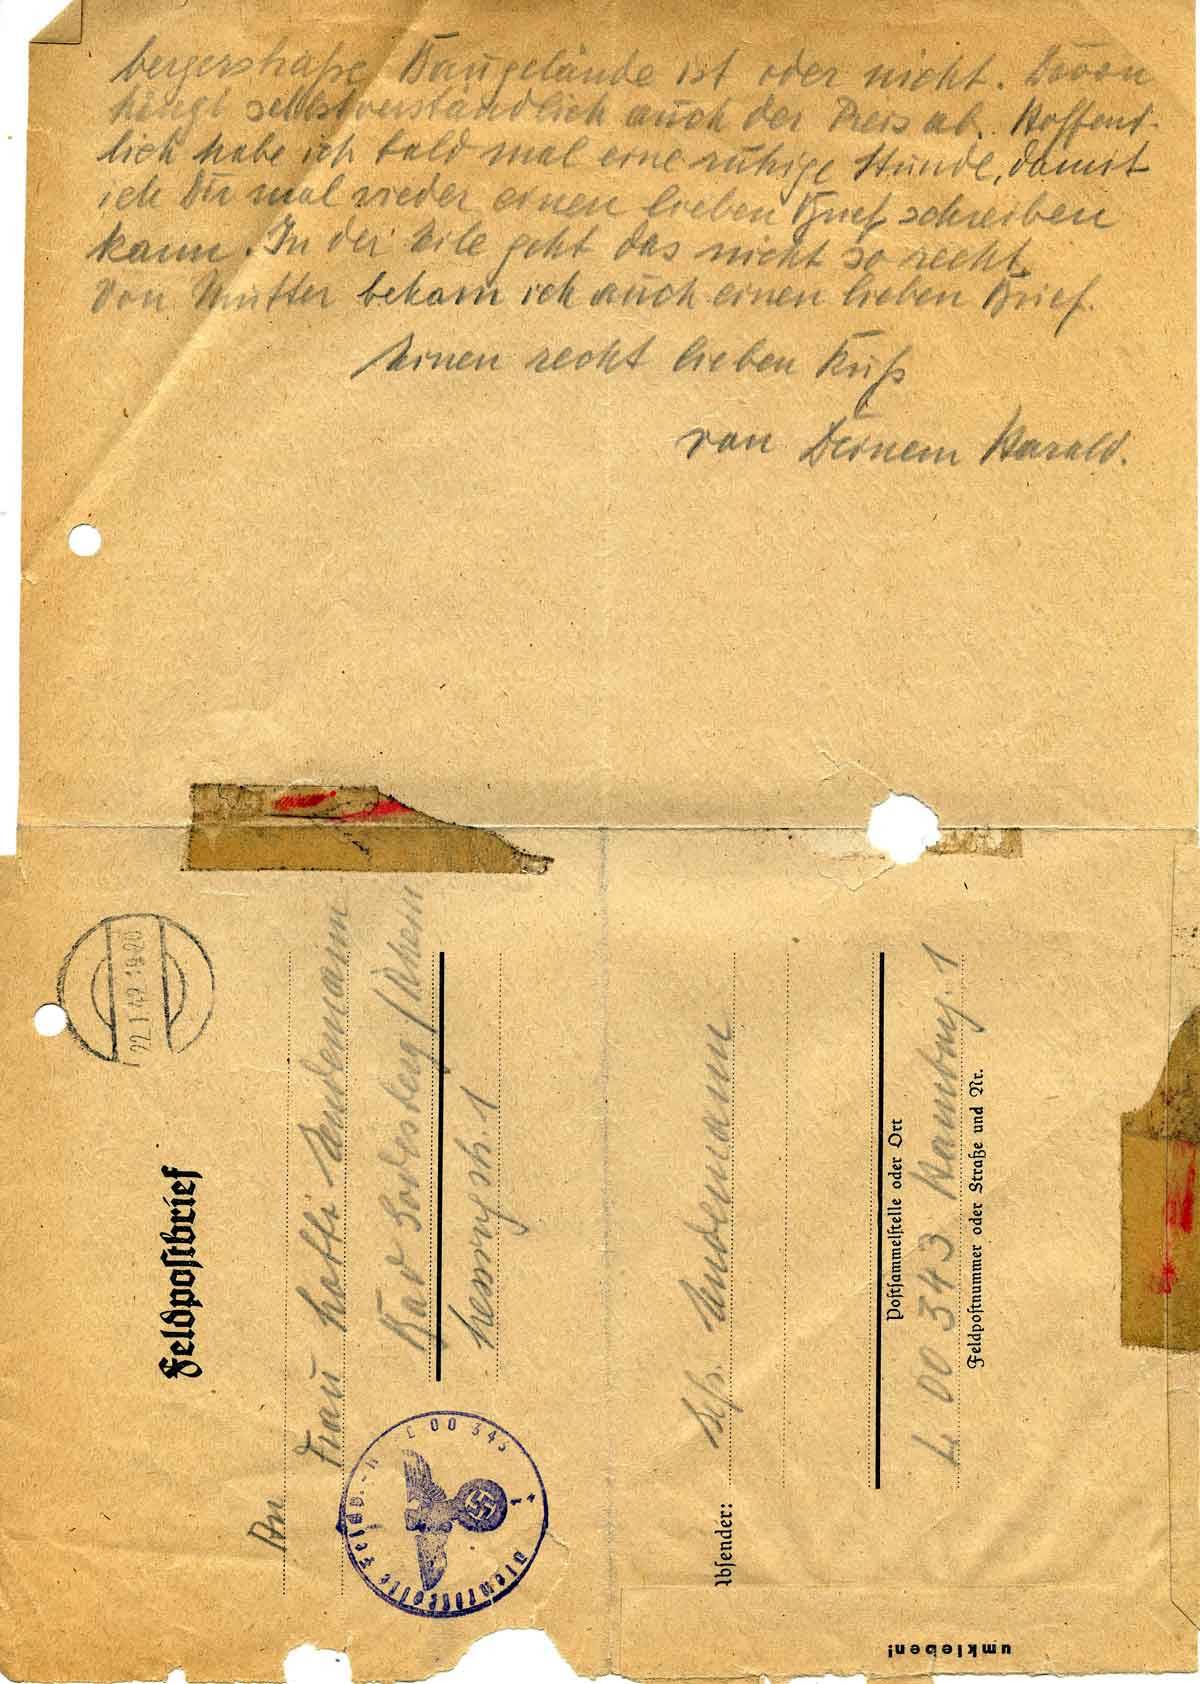 bergerstraße Baugelände ist oder nicht. Davon
hängt selbstverständlich auch der Preis ab. Hoffent-
lich habe ich bald mal eine ruhige Stunde, damit
ich Dir mal wieder einen lieben Brief schreiben
kann. In der Eile geht das nicht so recht.
Von Mutter bekam ich auch einen lieben Brief.
Einen recht lieben Kuß
von Deinem Harald.
22.1.42.19-20
Feldpostbrief
An
Frau Lotti Endemann
Bad Godesberg/Rhein
1
Dienststelle Feldp.-N L 00 343
1
Absender:
Endemann
Postsammelstelle oder Ort
L 00 343 Hamburg. 1
Feldpostnummer oder Straße und Nr.
umkleben!